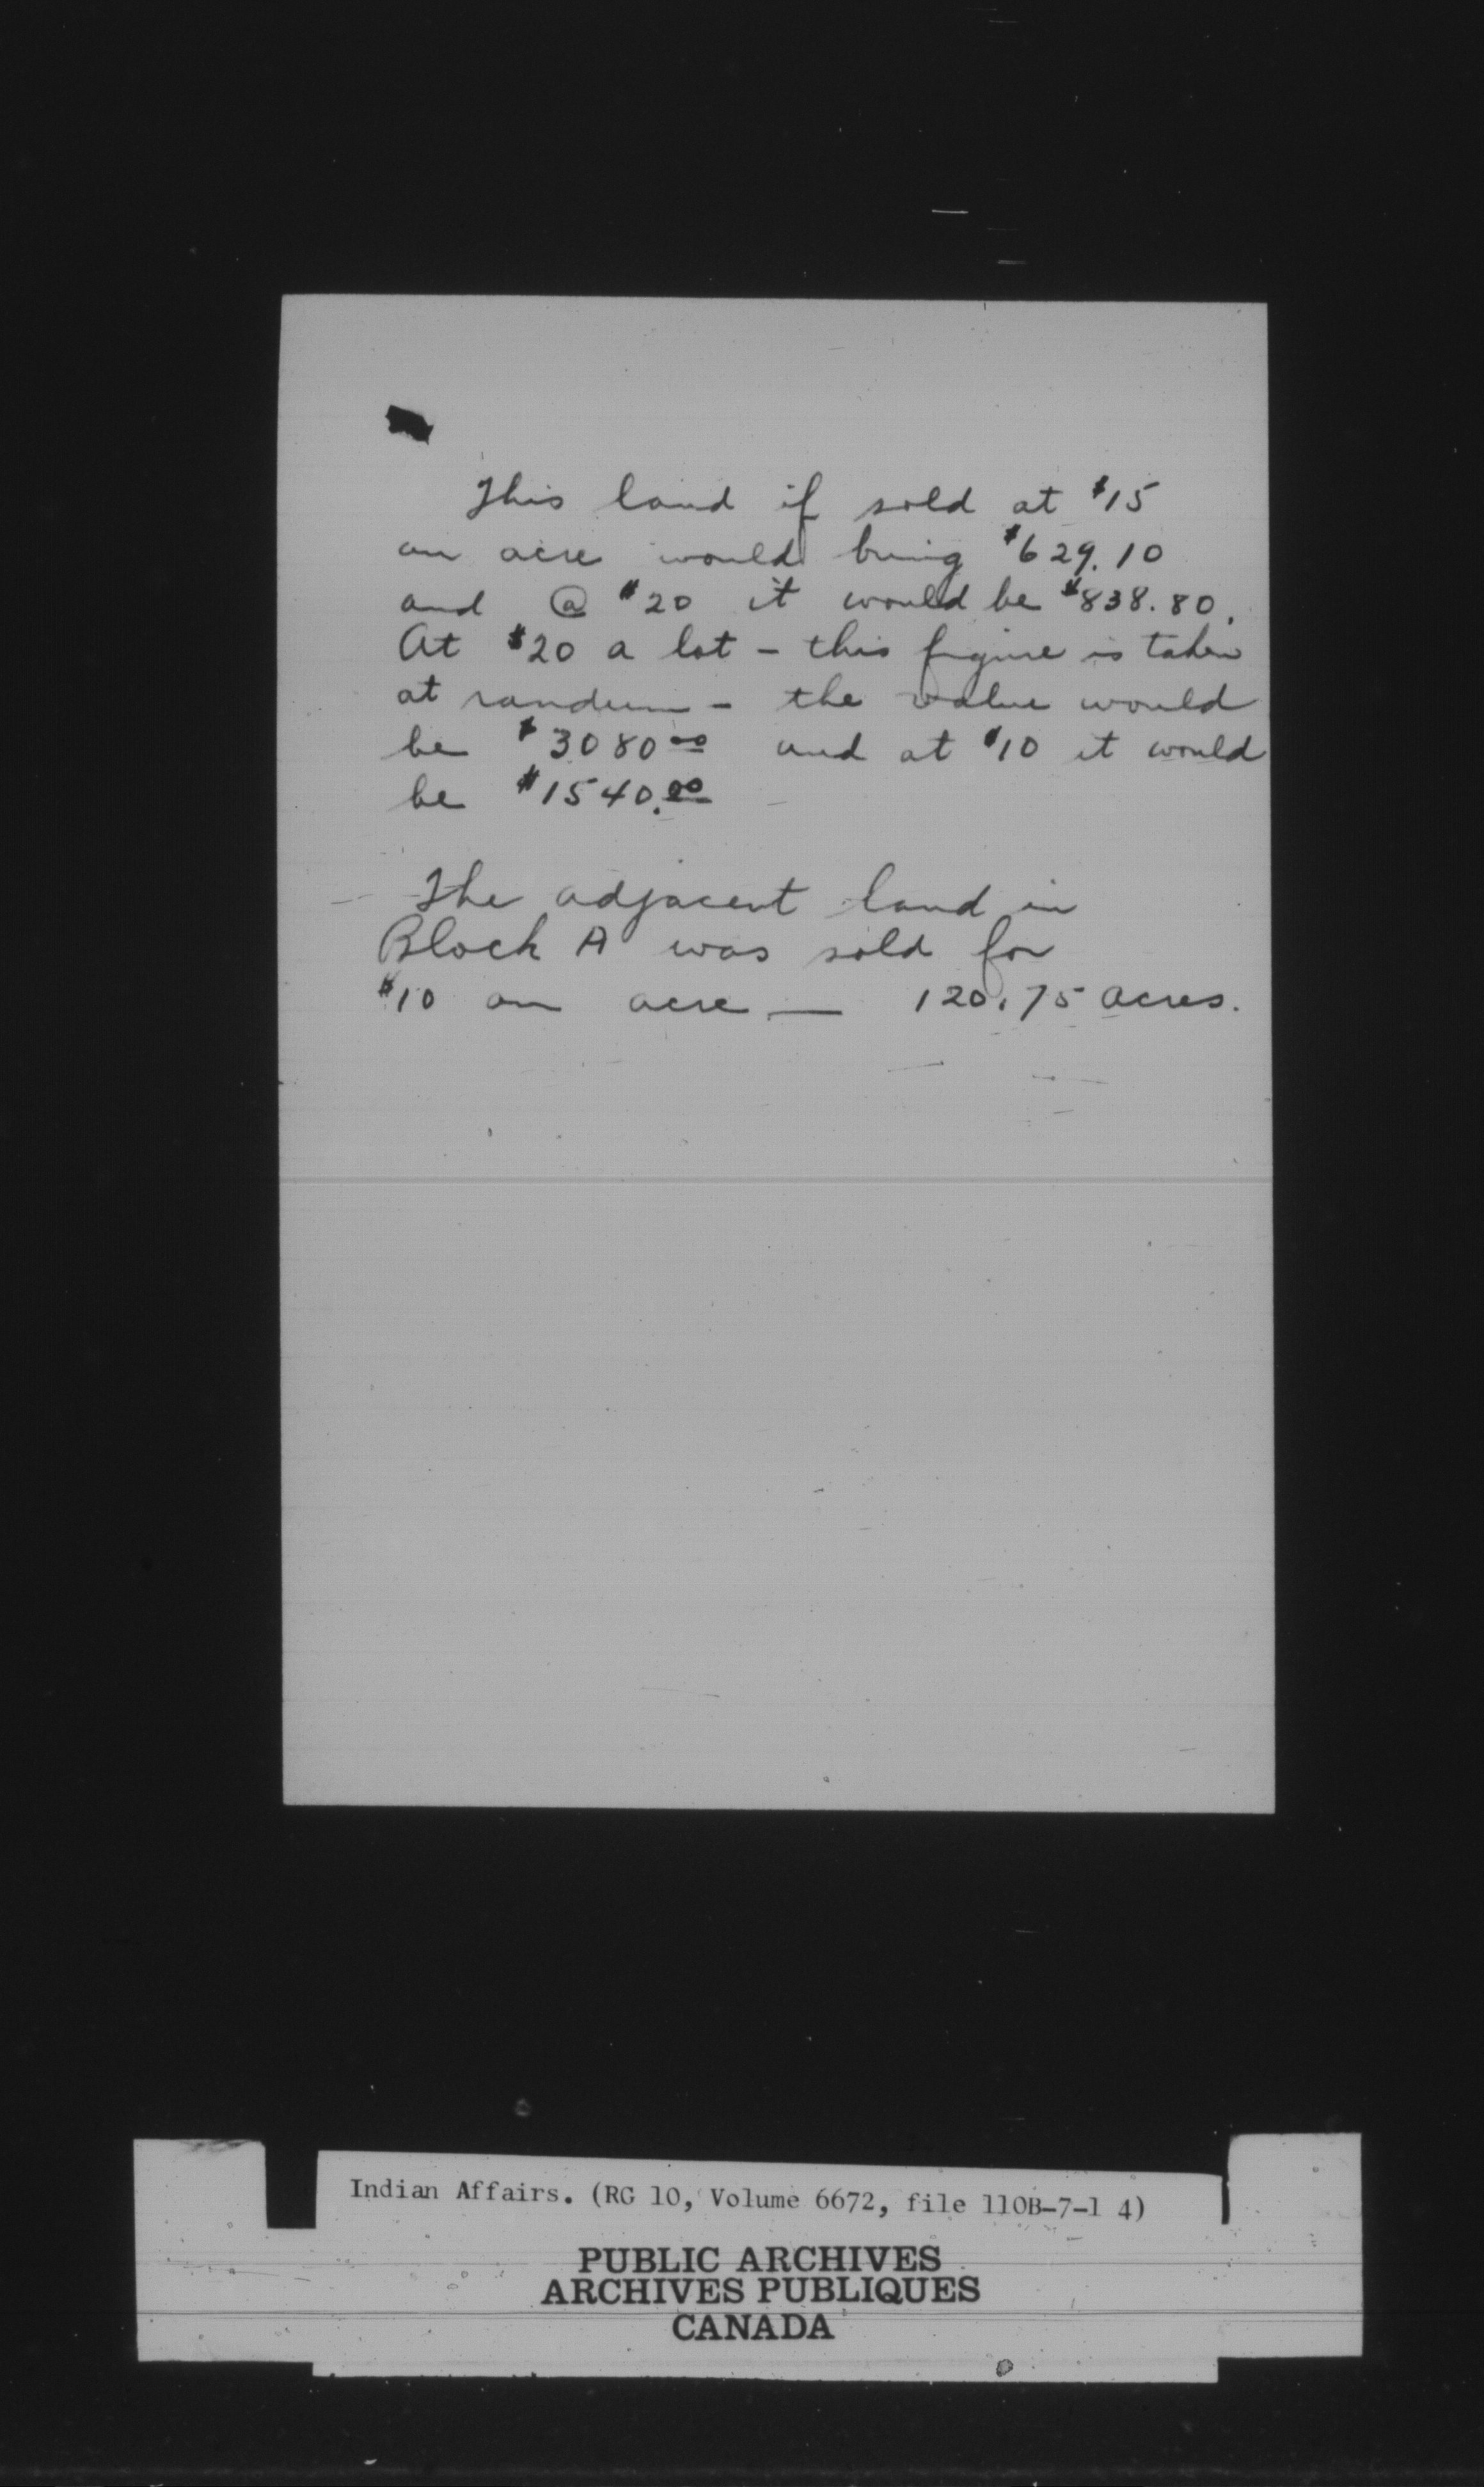 This land if sold at $15
an acre would bring $629.10
and @ $20 it would be $838.80.
At $20 a lot - this figure is taken
at random - the value would
be $3080.00 and at $10 it would
be $1540.00
The adjacent land in
Block A was sold for
$10 an acre — 120.75 acres.
Indian Affairs. (RG 10, Volume 6672, file 110B-7-1 4)
PUBLIC ARCHIVES
ARCHIVES PUBLIQUES
CANADA